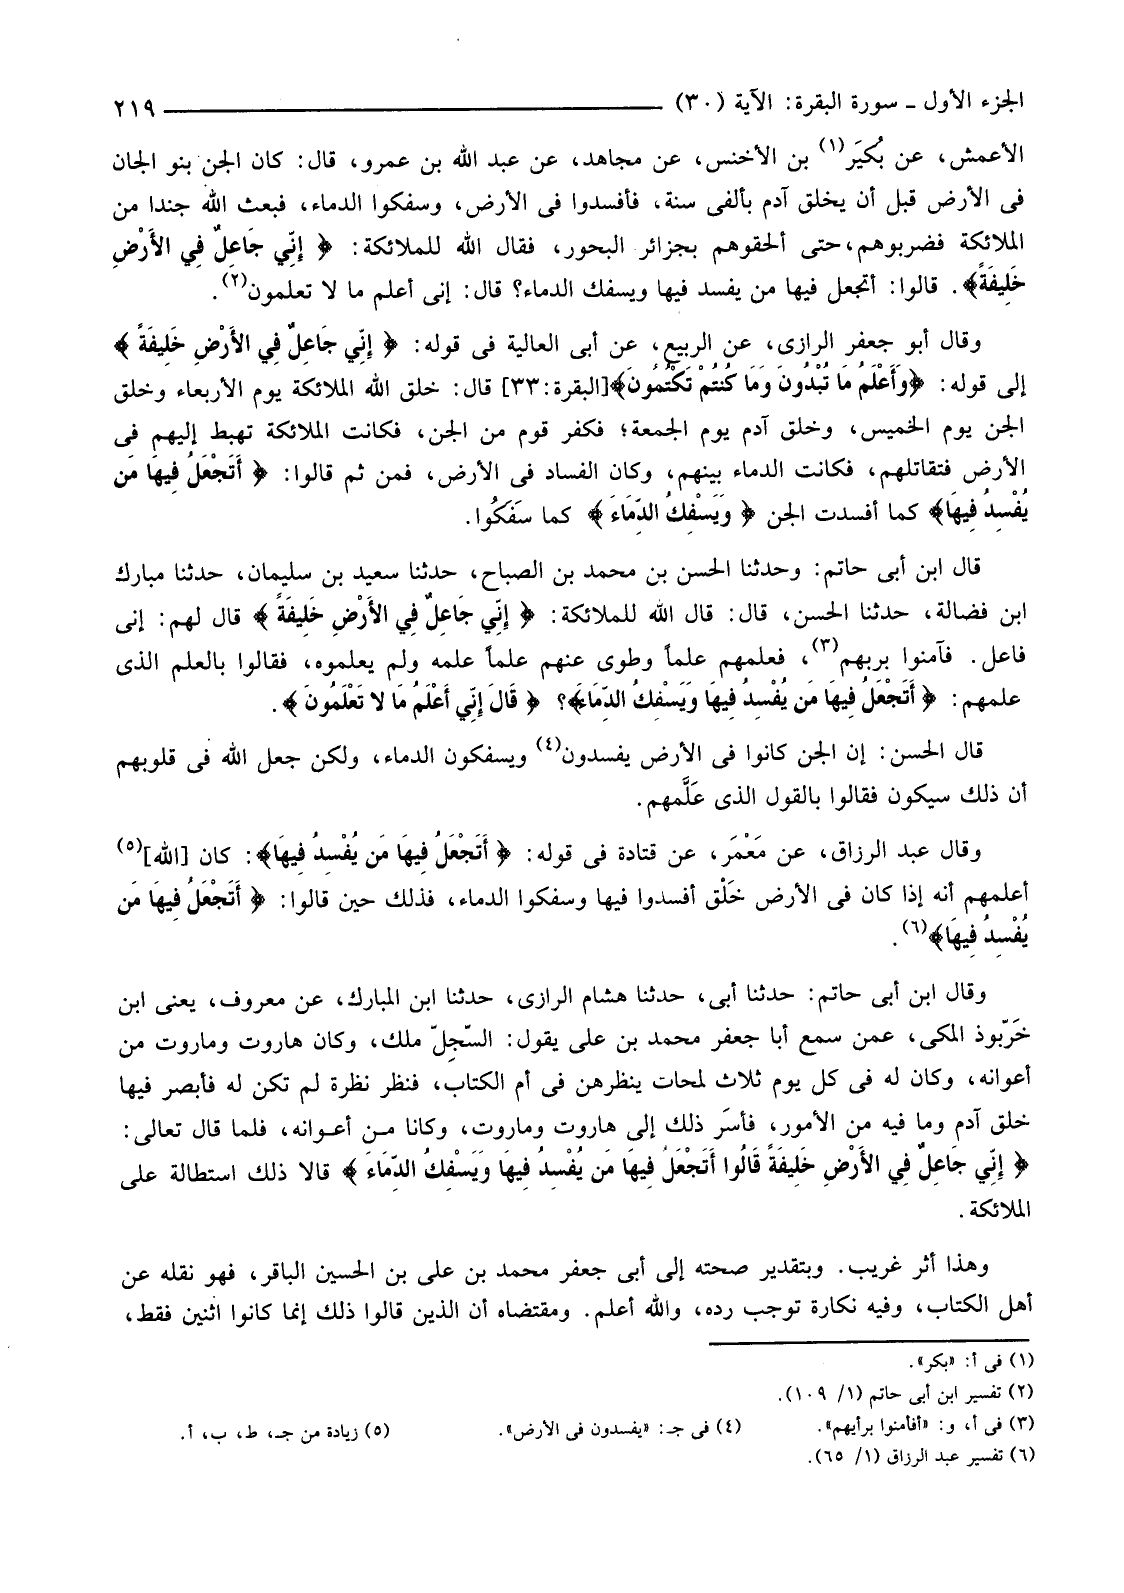 الجزء الأول ـ سورة البقرة: الآية (٣٠) ــــــــــــــــ ٢١٩
الأعمش، عن بُكَير(١) بن الأخنس، عن مجاهد، عن عبد الله بن عمرو، قال: كان الجن بنو الجان
فى الأرض قبل أن يخلق آدم بألفى سنة، فأفسدوا فى الأرض، وسفكوا الدماء، فبعث الله جندا من
الملائكة فضربوهم،حتى ألحقوهم بجزائر البحور، فقال الله للملائكة: ﴿ إِنِّي جَاعِلٌ فِي الأَرْضِ
خَلِيفَةً﴾. قالوا: أتجعل فيها من يفسد فيها ويسفك الدماء؟ قال: إنى أعلم ما لا تعلمون(٢).
وقال أبو جعفر الرازى، عن الربيع، عن أبى العالية فى قوله: ﴿ إِنِّي جَاعِلٌ فِي الأَرْضِ خَلِيفَةً ﴾
إلى قوله: ﴿وَأَعْلَمُ مَا تُبْدُونَ وَمَا كُنتُمْ تَكْتُمُونَ﴾[البقرة:٣٣] قال: خلق الله الملائكة يوم الأربعاء وخلق
الجن يوم الخميس، وخلق آدم يوم الجمعة؛ فكفر قوم من الجن، فكانت الملائكة تهبط إليهم فى
الأرض فتقاتلهم، فكانت الدماء بينهم، وكان الفساد فى الأرض، فمن ثم قالوا: ﴿ أَتَجْعَلُ فِيهَا مَن
يُفْسِدُ فِيهَا﴾ كما أفسدت الجن ﴿ وَيَسْفِكُ الدِّمَاءَ ﴾ كما سَفَكُوا.
قال ابن أبى حاتم: وحدثنا الحسن بن محمد بن الصباح، حدثنا سعيد بن سليمان، حدثنا مبارك
ابن فضالة، حدثنا الحسن، قال: قال الله للملائكة: ﴿ إِنِّي جَاعِلٌ فِي الأَرْضِ خَلِيفَةً ﴾ قال لهم: إنى
فاعل. فآمنوا بربهم(٣)، فعلمهم علماً وطوى عنهم علماً علمه ولم يعلموه، فقالوا بالعلم الذى
علمهم: ﴿ أَتَجْعَلُ فِيهَا مَن يُفْسِدُ فِيهَا وَيَسْفِكُ الدِّمَاءَ﴾؟ ﴿ قَالَ إِنِّي أَعْلَمُ مَا لا تَعْلَمُونَ ﴾.
قال الحسن: إن الجن كانوا فى الأرض يفسدون(٤) ويسفكون الدماء، ولكن جعل الله فى قلوبهم
أن ذلك سيكون فقالوا بالقول الذى عَلَّمهم.
وقال عبد الرزاق، عن مَعْمَر، عن قتادة فى قوله: ﴿ أَتَجْعَلُ فِيهَا مَن يُفْسِدُ فِيهَا﴾: كان [الله](٥)
أعلمهم أنه إذا كان فى الأرض خَلْق أفسدوا فيها وسفكوا الدماء، فذلك حين قالوا: ﴿ أَتَجْعَلُ فِيهَا مَن
يُفْسِدُ فِيهَا﴾(٦).
وقال ابن أبى حاتم: حدثنا أبى، حدثنا هشام الرازى، حدثنا ابن المبارك، عن معروف، يعنى ابن
خَرّبوذ المكى، عمن سمع أبا جعفر محمد بن على يقول: السّجِلّ ملك، وكان هاروت وماروت من
أعوانه، وكان له فى كل يوم ثلاث لمحات ينظرهن فى أم الكتاب، فنظر نظرة لم تكن له فأبصر فيها
خلق آدم وما فيه من الأمور، فأسَر ذلك إلى هاروت وماروت، وكانا مـن أعـوانه، فلما قال تعالى:
﴿ إِنِّي جَاعِلٌ فِي الأَرْضِ خَلِيفَةً قَالُوا أَتَجْعَلُ فِيهَا مَن يُفْسِدُ فِيهَا وَيَسْفِكُ الدِّمَاءَ ﴾ قالا ذلك استطالة على
الملائكة.
وهذا أثر غريب. وبتقدير صحته إلى أبى جعفر محمد بن على بن الحسين الباقر، فهو نقله عن
أهل الكتاب، وفيه نكارة توجب رده، والله أعلم. ومقتضاه أن الذين قالوا ذلك إنما كانوا اثنين فقط،
(١) فى أ: «بكر».
(٢) تفسير ابن أبى حاتم (١/ ١٠٩).
(٣) فى أ، و: «أفآمنوا برأيهم». (٤) فى جـ: «يفسدون فى الأرض». (٥) زيادة من جـ، ط، ب، أ.
(٦) تفسير عبد الرزاق (١/ ٦٥).